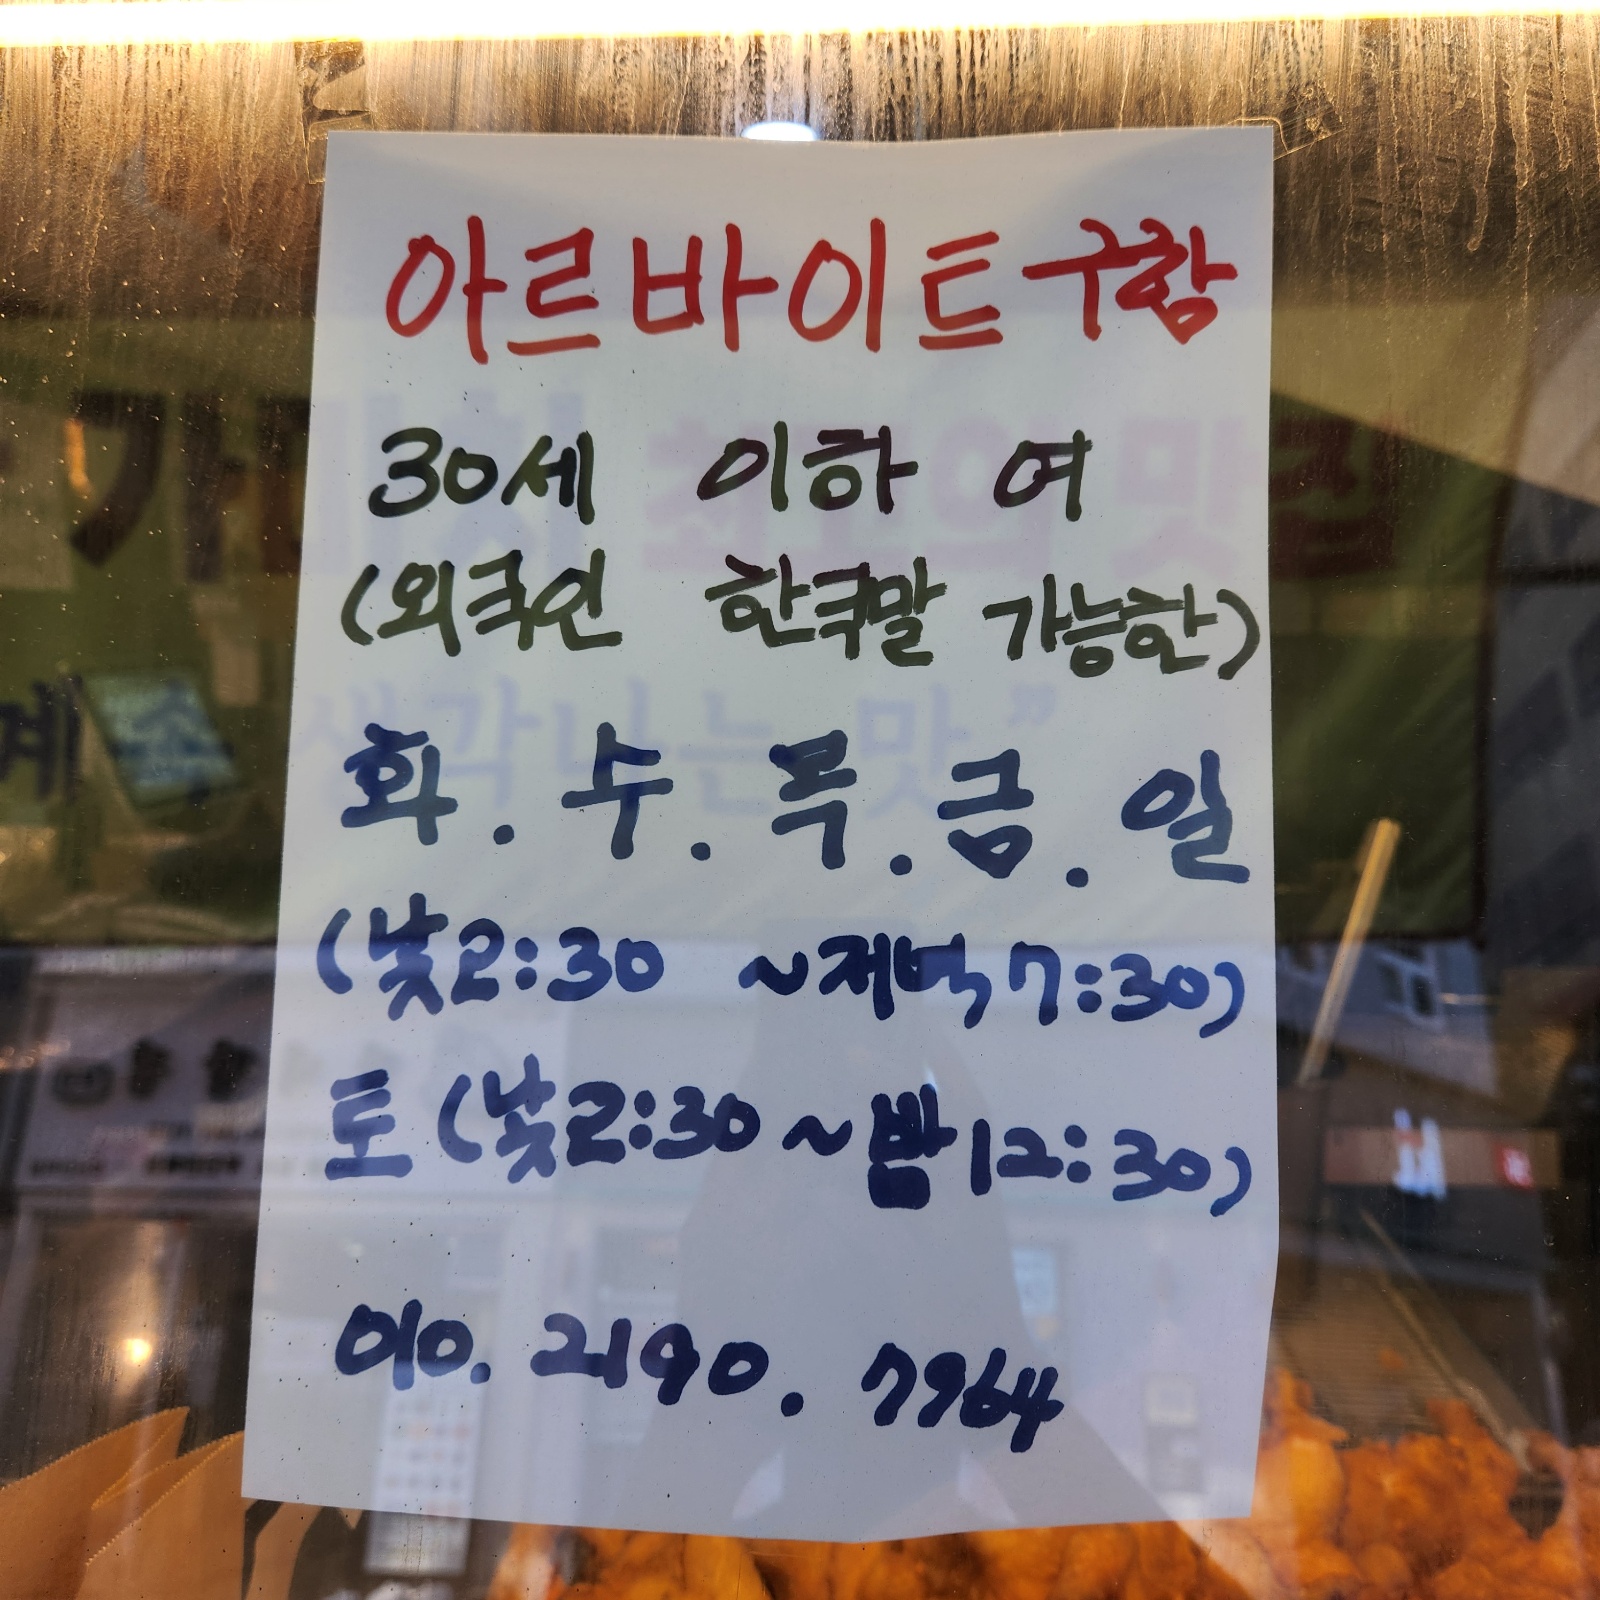 아르바이트 구함
30세 이하 여
(외국인 한국말 가능한)
화. 수. 목. 금. 일
(낮2:30 ~저녁7:30)
토(낮2:30~밤12:30)
010. 2190. 7964